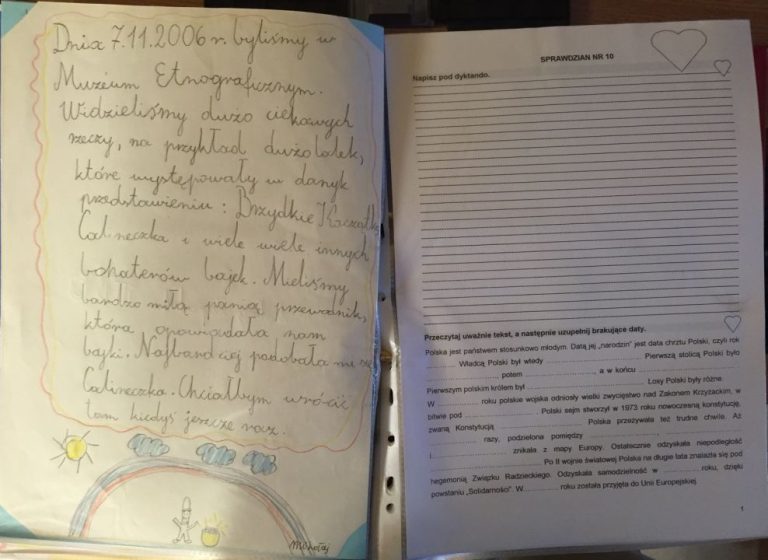 Dnia 7.11.2006 r. byliśmy w
Muzeum Etnograficznym.
Widzieliśmy dużo ciekawych
rzeczy, na przykład dużo lalek,
które występowały w danyk
przedstawieniu : Brzydkie Kaczątko,
Calineczka i wiele wiele innych
bohaterów bajek. Mieliśmy
bardzo miłą panią przewodnik,
która opowiadała nam
bajki. Najbardziej podobała mi się
Calineczka. Chciałbym wrócić
tam kiedyś jeszcze raz.
Mikołaj
SPRAWDZIAN NR 10
Napisz pod dyktando.
Przeczytaj uważnie tekst, a następnie uzupełnij brakujące daty.
Polska jest państwem stosunkowo młodym. Datą jej „narodzin” jest data chrztu Polski, czyli rok
.................. Władcą Polski był wtedy .................................. Pierwszą stolicą Polski było
.................................., potem .................................. a w końcu ..................................
Pierwszym polskim królem był .................................. Losy Polski były różne.
W .................. roku polskie wojska odniosły wielki zwycięstwo nad Zakonem Krzyżackim, w
bitwie pod .................................. Polski sejm stworzył w 1973 roku nowoczesną konstytucję,
zwaną Konstytucją .................................. Polska przeżywała też trudne chwile. Aż
.................. razy, podzielona pomiędzy ..................................
i .................................. znikała z mapy Europy. Ostatecznie odzyskała niepodległość
.................................. Po II wojnie światowej Polska na długie lata znalazła się pod
hegemonią Związku Radzieckiego. Odzyskała samodzielność w .................. roku, dzięki
powstaniu „Solidarności”. W .................. roku została przyjęta do Unii Europejskiej.
1